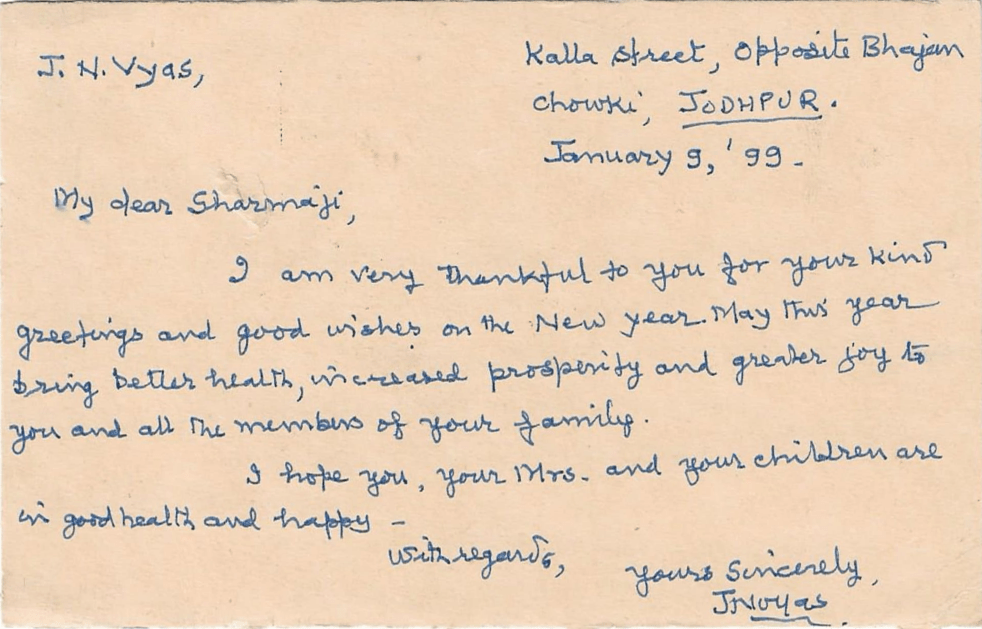 J. N. Vyas,
Kalla Street, Opposite Bhajan
Chowki, JODHPUR.
January 9, '99.
My dear Sharmaji,
I am very thankful to you for your kind
greetings and good wishes on the New year. May this year
bring better health, increased prosperity and greater joy to
you and all the members of your family.
I hope you, your Mrs. and your children are
in good health and happy –
With regards,
Yours Sincerely,
JNVyas.